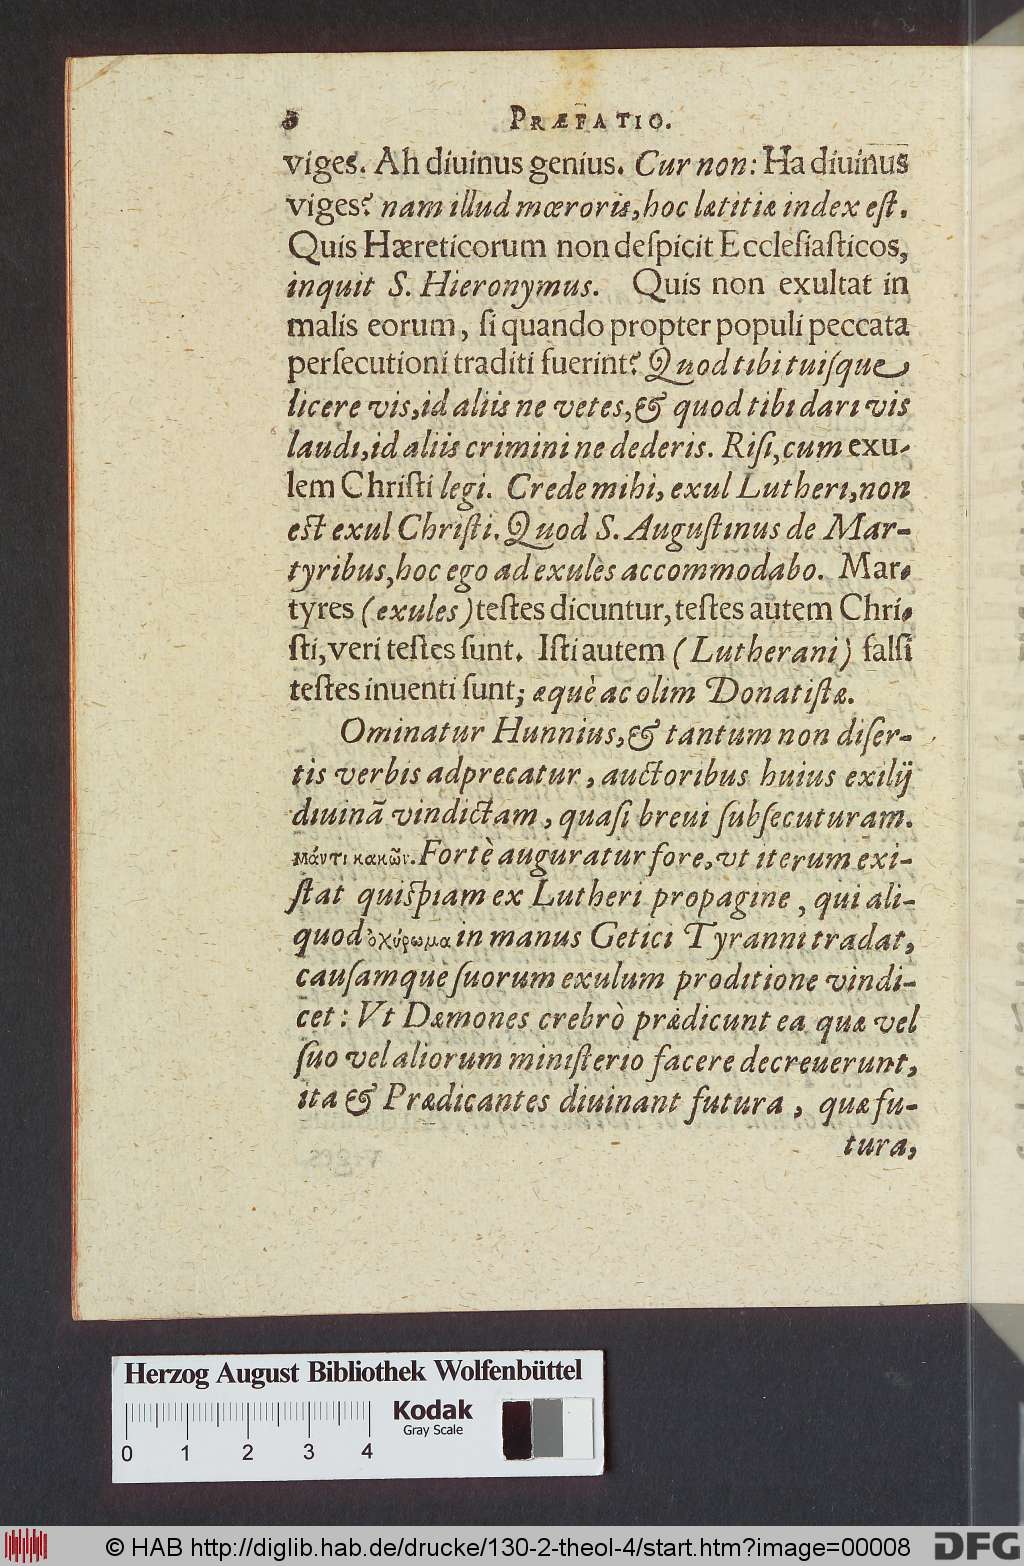 PRÆFATIO.
viges. Ah diuinus genius. Cur non: Ha diuinus
viges? nam illud mœroris, hoc lætitiæ index eſt.
Quis Hæreticorum non deſpicit Eccleſiaſticos,
inquit S. Hieronymus. Quis non exultat in
malis eorum, ſi quando propter populi peccata
perſecutioni traditi fuerint? Quod tibi tuiſque
licere vis, id aliis ne vetes, & quod tibi dari vis
laudi, id aliis crimini ne dederis. Riſi, cum exu-
lem Chriſti legi. Crede mihi, exul Lutheri, non
eſt exul Chriſti. Quod S. Auguſtinus de Mar-
tyribus, hoc ego ad exules accommodabo. Mar-
tyres (exules) teſtes dicuntur, teſtes autem Chri-
ſti, veri teſtes ſunt. Iſti autem (Lutherani) falſi
teſtes inuenti ſunt; æquè ac olim Donatiſtæ.
Ominatur Hunnius, & tantum non diſer-
tis verbis adprecatur, auctoribus huius exilij
diuinã vindictam, quaſi breui ſubſecuturam.
μάντι κακῶν. Fortè auguratur fore, vt iterum exi-
ſtat quiſpiam ex Lutheri propagine, qui ali-
quod ὀχύρωμα in manus Getici Tyranni tradat,
cauſamque ſuorum exulum proditione vindi-
cet: Vt Dæmones crebrò prædicunt ea quæ vel
ſuo vel aliorum miniſterio facere decreuerunt,
ita & Prædicantes diuinant futura, quæ fu-
tura,
Herzog August Bibliothek Wolfenbüttel
Kodak
Gray Scale
0 1 2 3 4
© HAB http://diglib.hab.de/drucke/130-2-theol-4/start.htm?image=00008
DFG